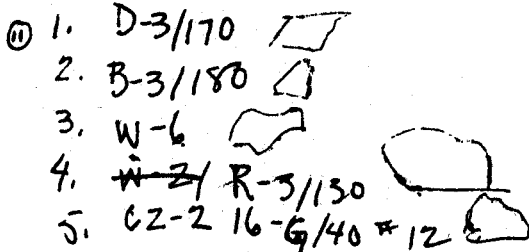 11 1. D-3/170
2. B-3/180
3. W-6
4. W-2/ R-3/130
5. CZ-2 16-G/40 # 12